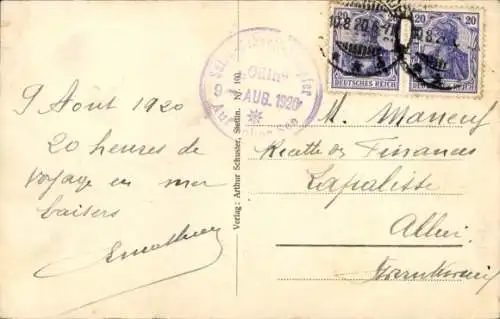 9 Août 1920
20 heures de
voyage en mer
baisers
"Odin"
9 AUG. 1920
Verlag: Arthur Schuster, Stettin. Nr. 160.
20 20
DEUTSCHES REICH DEUTSCHES REICH
10.8.20.6-7
M.
Recette des Finances
Lapalisse
Allier